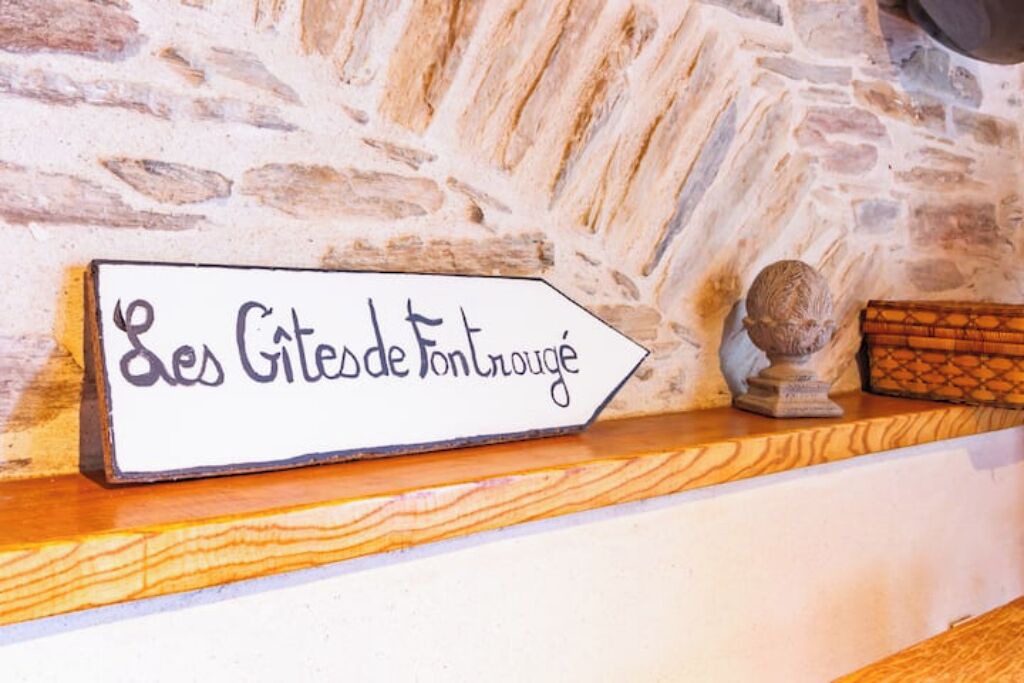 Les Gîtes de Fontrougé